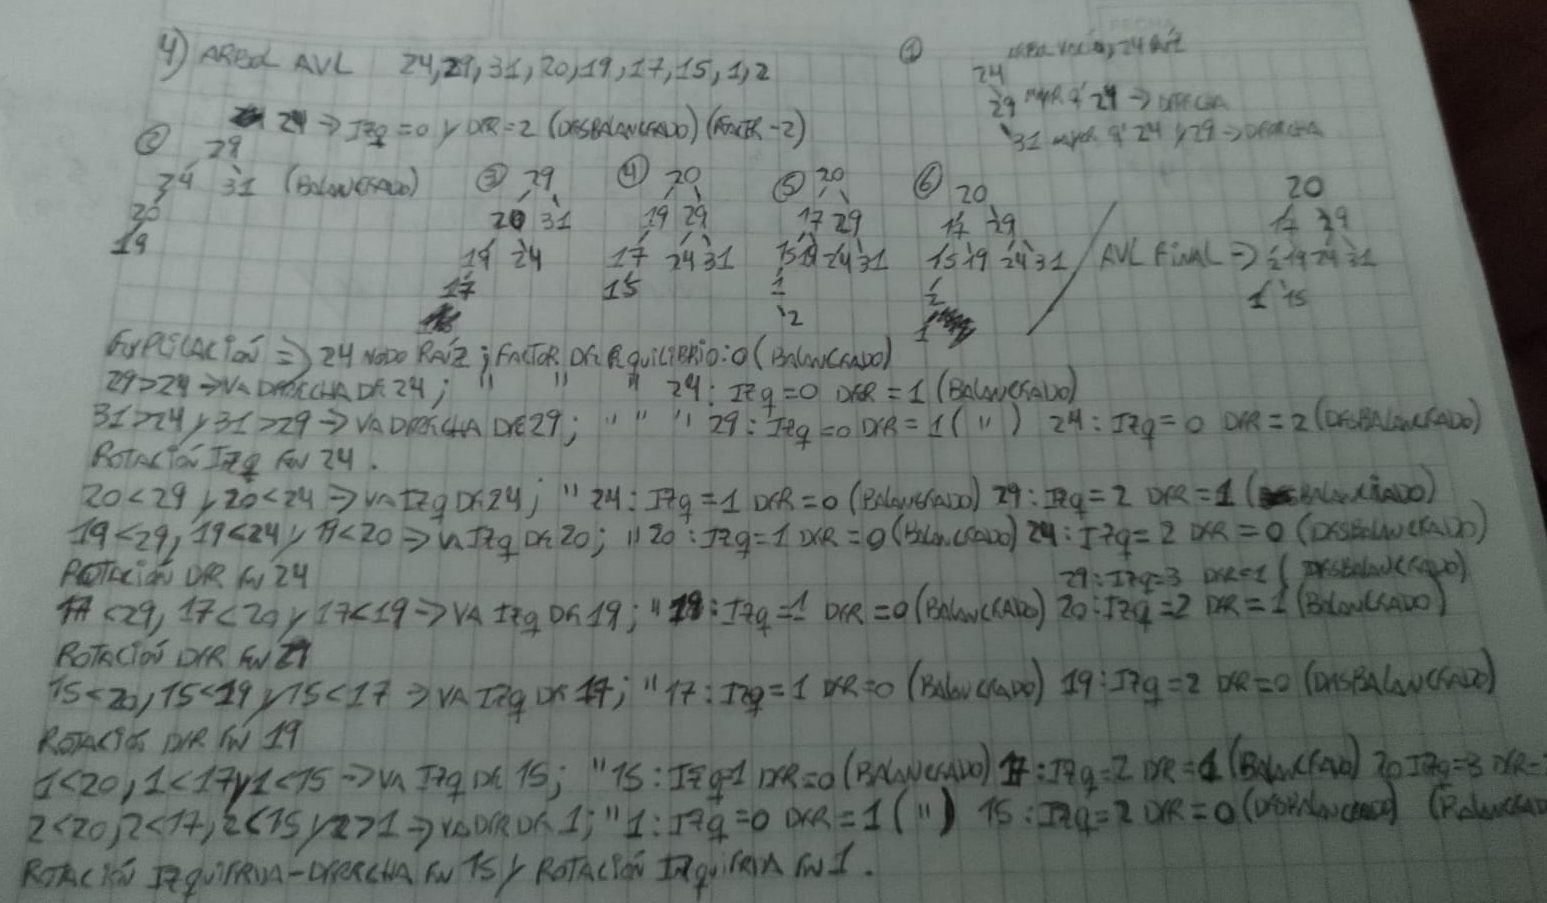 4) ARBOL AVL 24, 29, 31, 20, 19, 17, 15, 1, 2
① 24 RAÍZ
24
29 mayor q' 24 → DERECHA
31 mayor q' 24 y 29 → DERECHA
24 ⇒ Izq = 0 y DER = 2 (DESBALANCEADO) (FACTOR -2)
② 29
24 31 (BALANCEADO)
20
19
③ 29
20 31
19 24
17
④ 20
19 29
17 24 31
15
⑤ 20
17 29
15 19 24 31
1
2
⑥ 20
17 29
15 19 24 31
2
1
AVL FINAL ⇒
20
17 29
2 19 24 31
1 15
EXPLICACIÓN ⇒ 24 NODO RAÍZ; FACTOR DE EQUILIBRIO: 0 (BALANCEADO)
29 > 24 → VA DERECHA DE 24; " " " 24: Izq = 0 DER = 1 (BALANCEADO)
31 > 24 y 31 > 29 → VA DERECHA DE 29; " " " 29: Izq = 0 DER = 1 (") 24: Izq = 0 DER = 2 (DESBALANCEADO)
ROTACIÓN Izq EN 24.
20 < 29 y 20 < 24 ⇒ VA Izq DE 24; " 24: Izq = 1 DER = 0 (BALANCEADO) 29: Izq = 2 DER = 1 (BALANCEADO)
19 < 29, 19 < 24 y 19 < 20 ⇒ VA Izq DE 20; " 20: Izq = 1 DER = 0 (BALANCEADO) 24: Izq = 2 DER = 0 (DESBALANCEADO)
29: Izq = 3 DER = 1 (DESBALANCEADO)
ROTACIÓN DER EN 24
17 < 29, 17 < 20 y 17 < 19 → VA Izq DE 19; " 19: Izq = 1 DER = 0 (BALANCEADO) 20: Izq = 2 DER = 1 (BALANCEADO)
ROTACIÓN DER EN 29
15 < 20, 15 < 19 y 15 < 17 ⇒ VA Izq DE 17; " 17: Izq = 1 DER = 0 (BALANCEADO) 19: Izq = 2 DER = 0 (DESBALANCEADO)
ROTACIÓN DER EN 19
1 < 20, 1 < 17 y 1 < 15 → VA Izq DE 15; " 15: Izq=1 DER = 0 (BALANCEADO) 17: Izq = 2 DER = 1 (BALANCEADO) 20 Izq = 3 DER =
2 < 20, 2 < 17, 2 < 15 y 2 > 1 ⇒ VA DER DE 1; " 1: Izq = 0 DER = 1 (") 15: Izq = 2 DER = 0 (DESBALANCEADO) (BALANCEADO
ROTACIÓN IZQUIERDA-DERECHA EN 15 y ROTACIÓN IZQUIERDA EN 1.